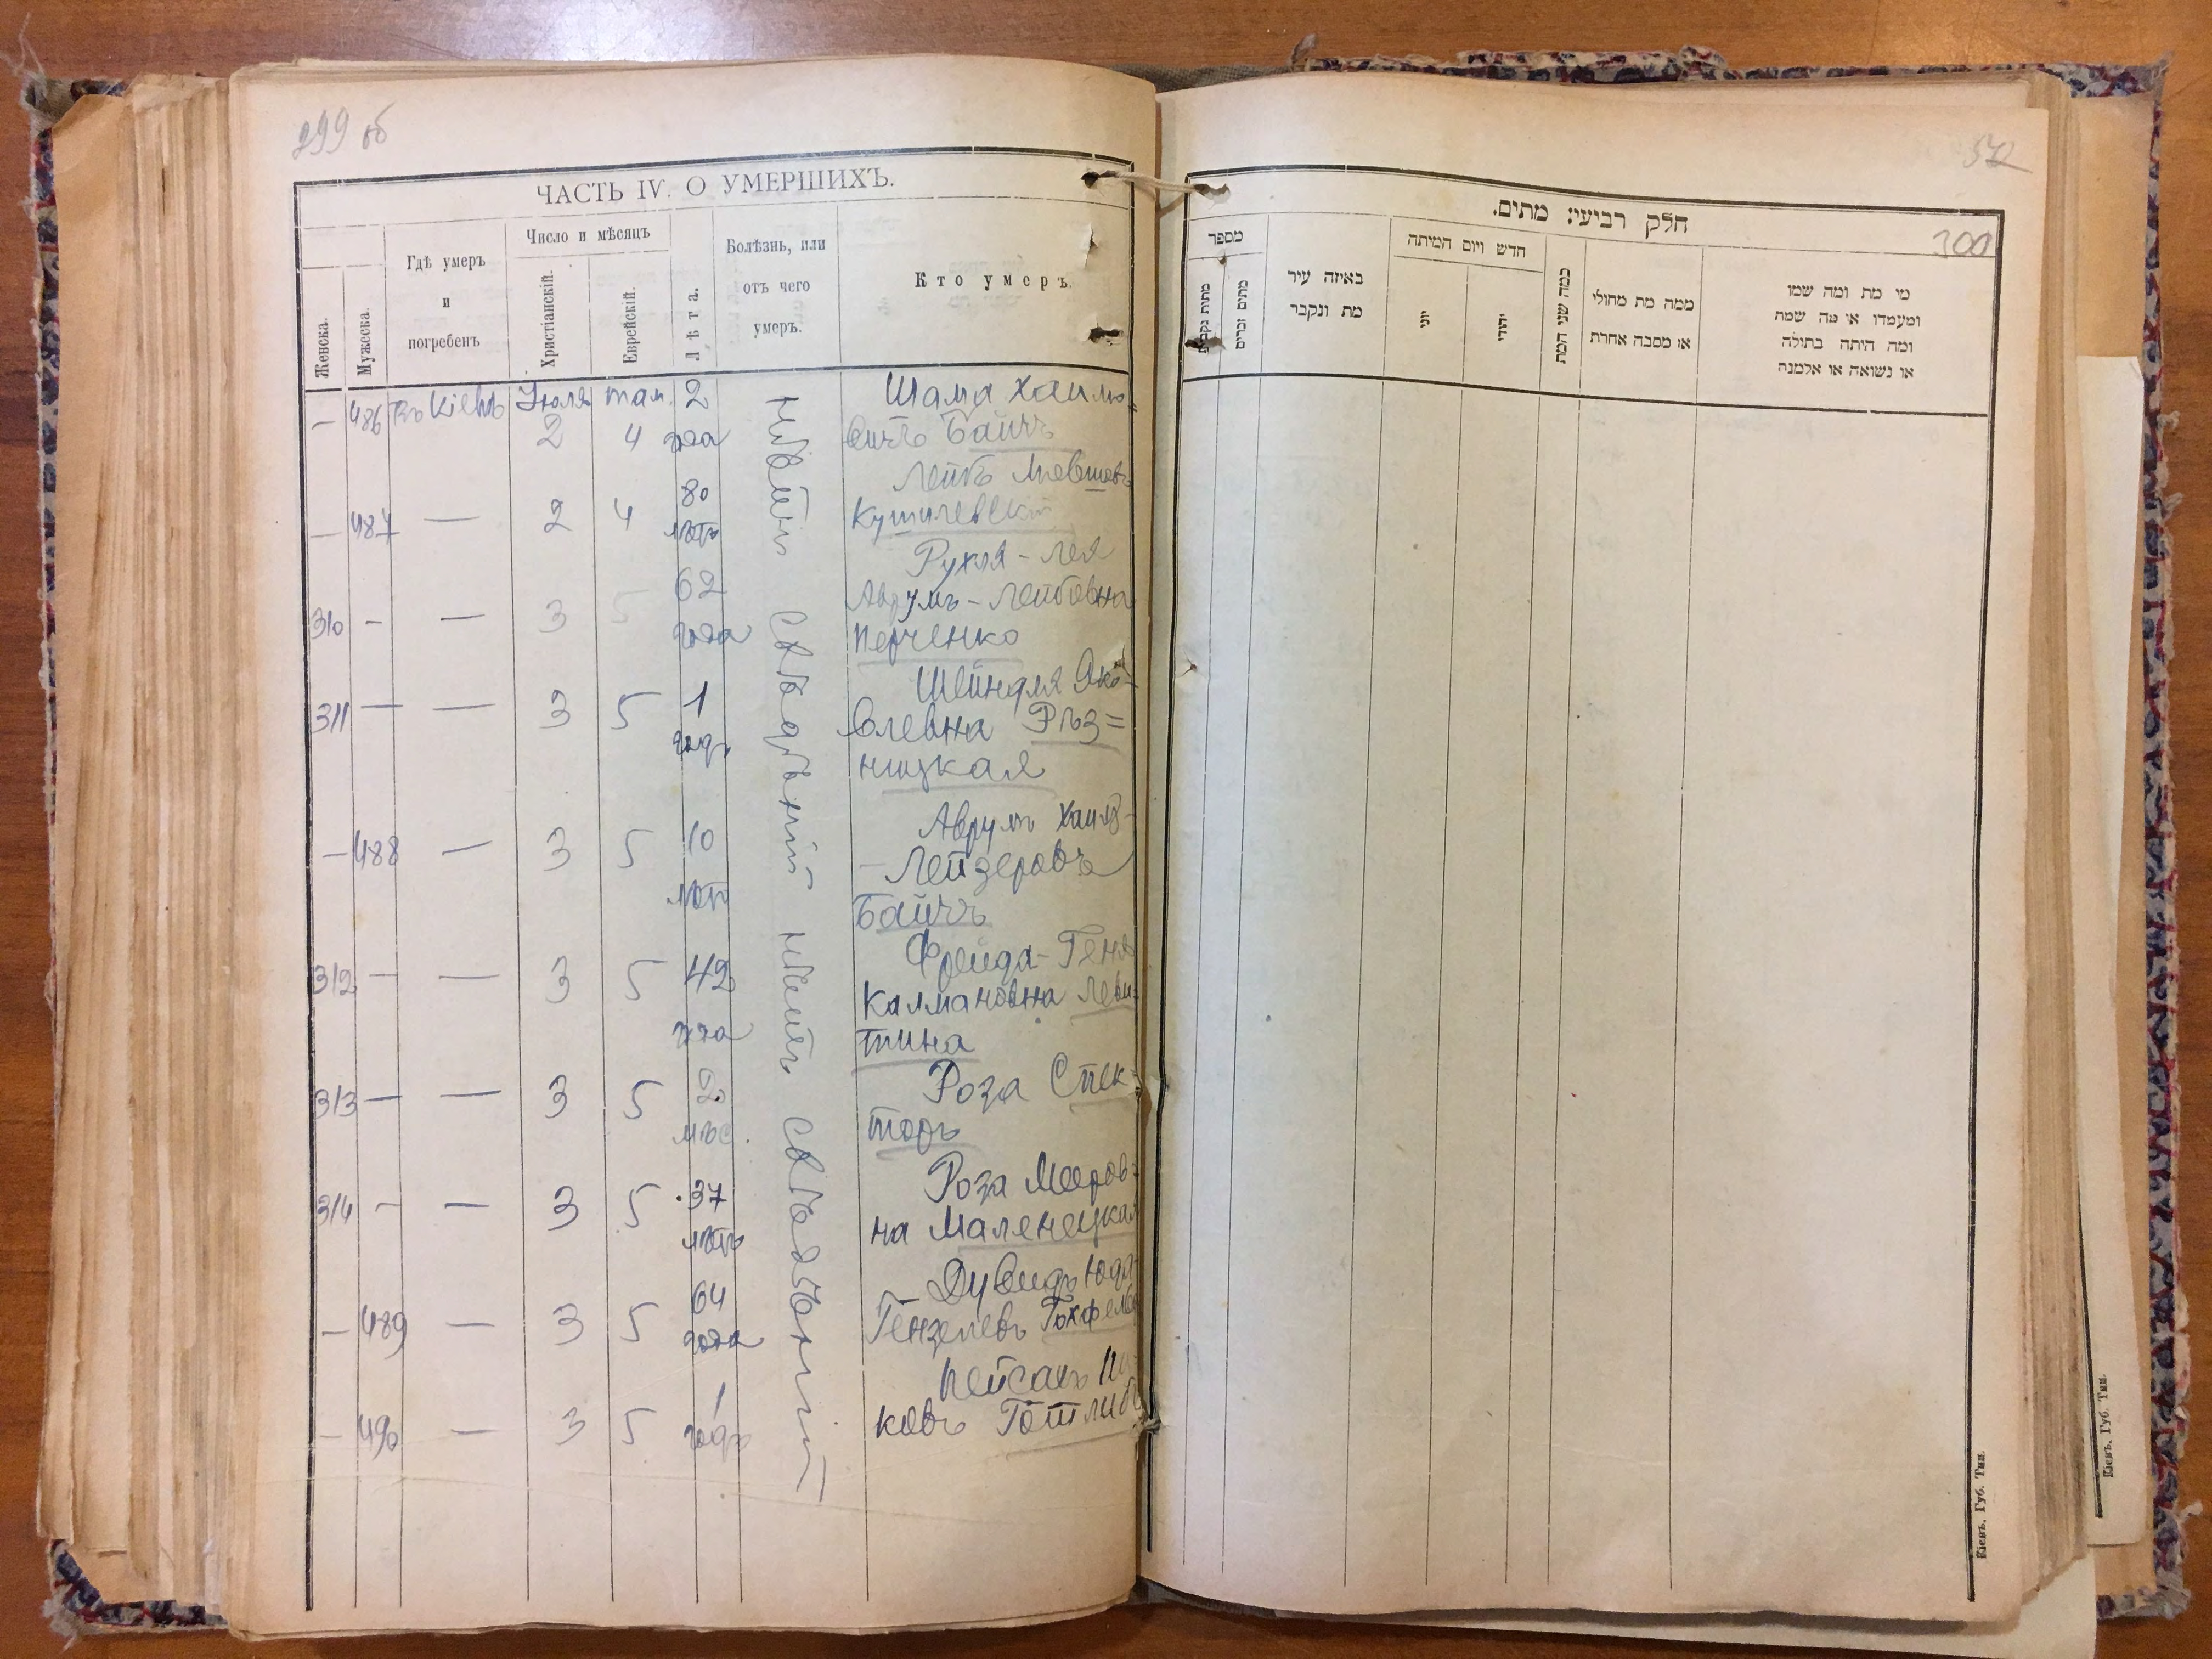 299 об
ЧАСТЬ IV. О УМЕРШИХЪ.
Женска.
Мужеска.
Гдѣ умеръ
и
погребенъ
Число и мѣсяцъ
Христіанскій.
Еврейскій.
Лѣта.
Болѣзнь, или
отъ чего
умеръ.
Кто умеръ
— 486 Въ Кіевѣ Іюля там. 2 Шама Хаимо
2 4 года вичъ Байчъ
Лейбъ
— 487 — 2 4 80 лѣтъ
Рухля-Лея
62 Аврумъ-Лейбовна
310 - — 3 5 года Перченко
Шейндля Яко-
311 — — 3 5 1 влевна Рѣз=
годъ ницкая
Аврумъ Хаимъ-
— 488 — 3 5 10 -Лейзеровъ
лѣтъ Байчъ
Фрейда-Геня
312 — — 3 5 42 Калмановна Леви=
года тина
Роза Спек-
313 — — 3 5 2 мѣс. торъ
Роза Меэров=
314 - — 3 5 37 на Маленецкая
лѣтъ
Дувидъ Юда-
— 489 — 3 5 64 года Гензелевъ
Пейсахъ
— 490 — 3 5 1 годъ ковъ Готлибъ
нѣтъ свѣдѣній нѣтъ свѣдѣній
300
חלק רביעי: מתים.
מספר
מתות נקבות
מתים זכרים
באיזה עיר
מת ונקבר
חדש ויום המיתה
יוני
יהודי
כמה שני המת
ממה מת מחולי
או מסבה אחרת
מי מת ומה שמו
ומעמדו או מה שמה
ומה היתה בתולה
או נשואה או אלמנה
Кіевъ. Губ. Тип.
Кіевъ. Губ. Тип.